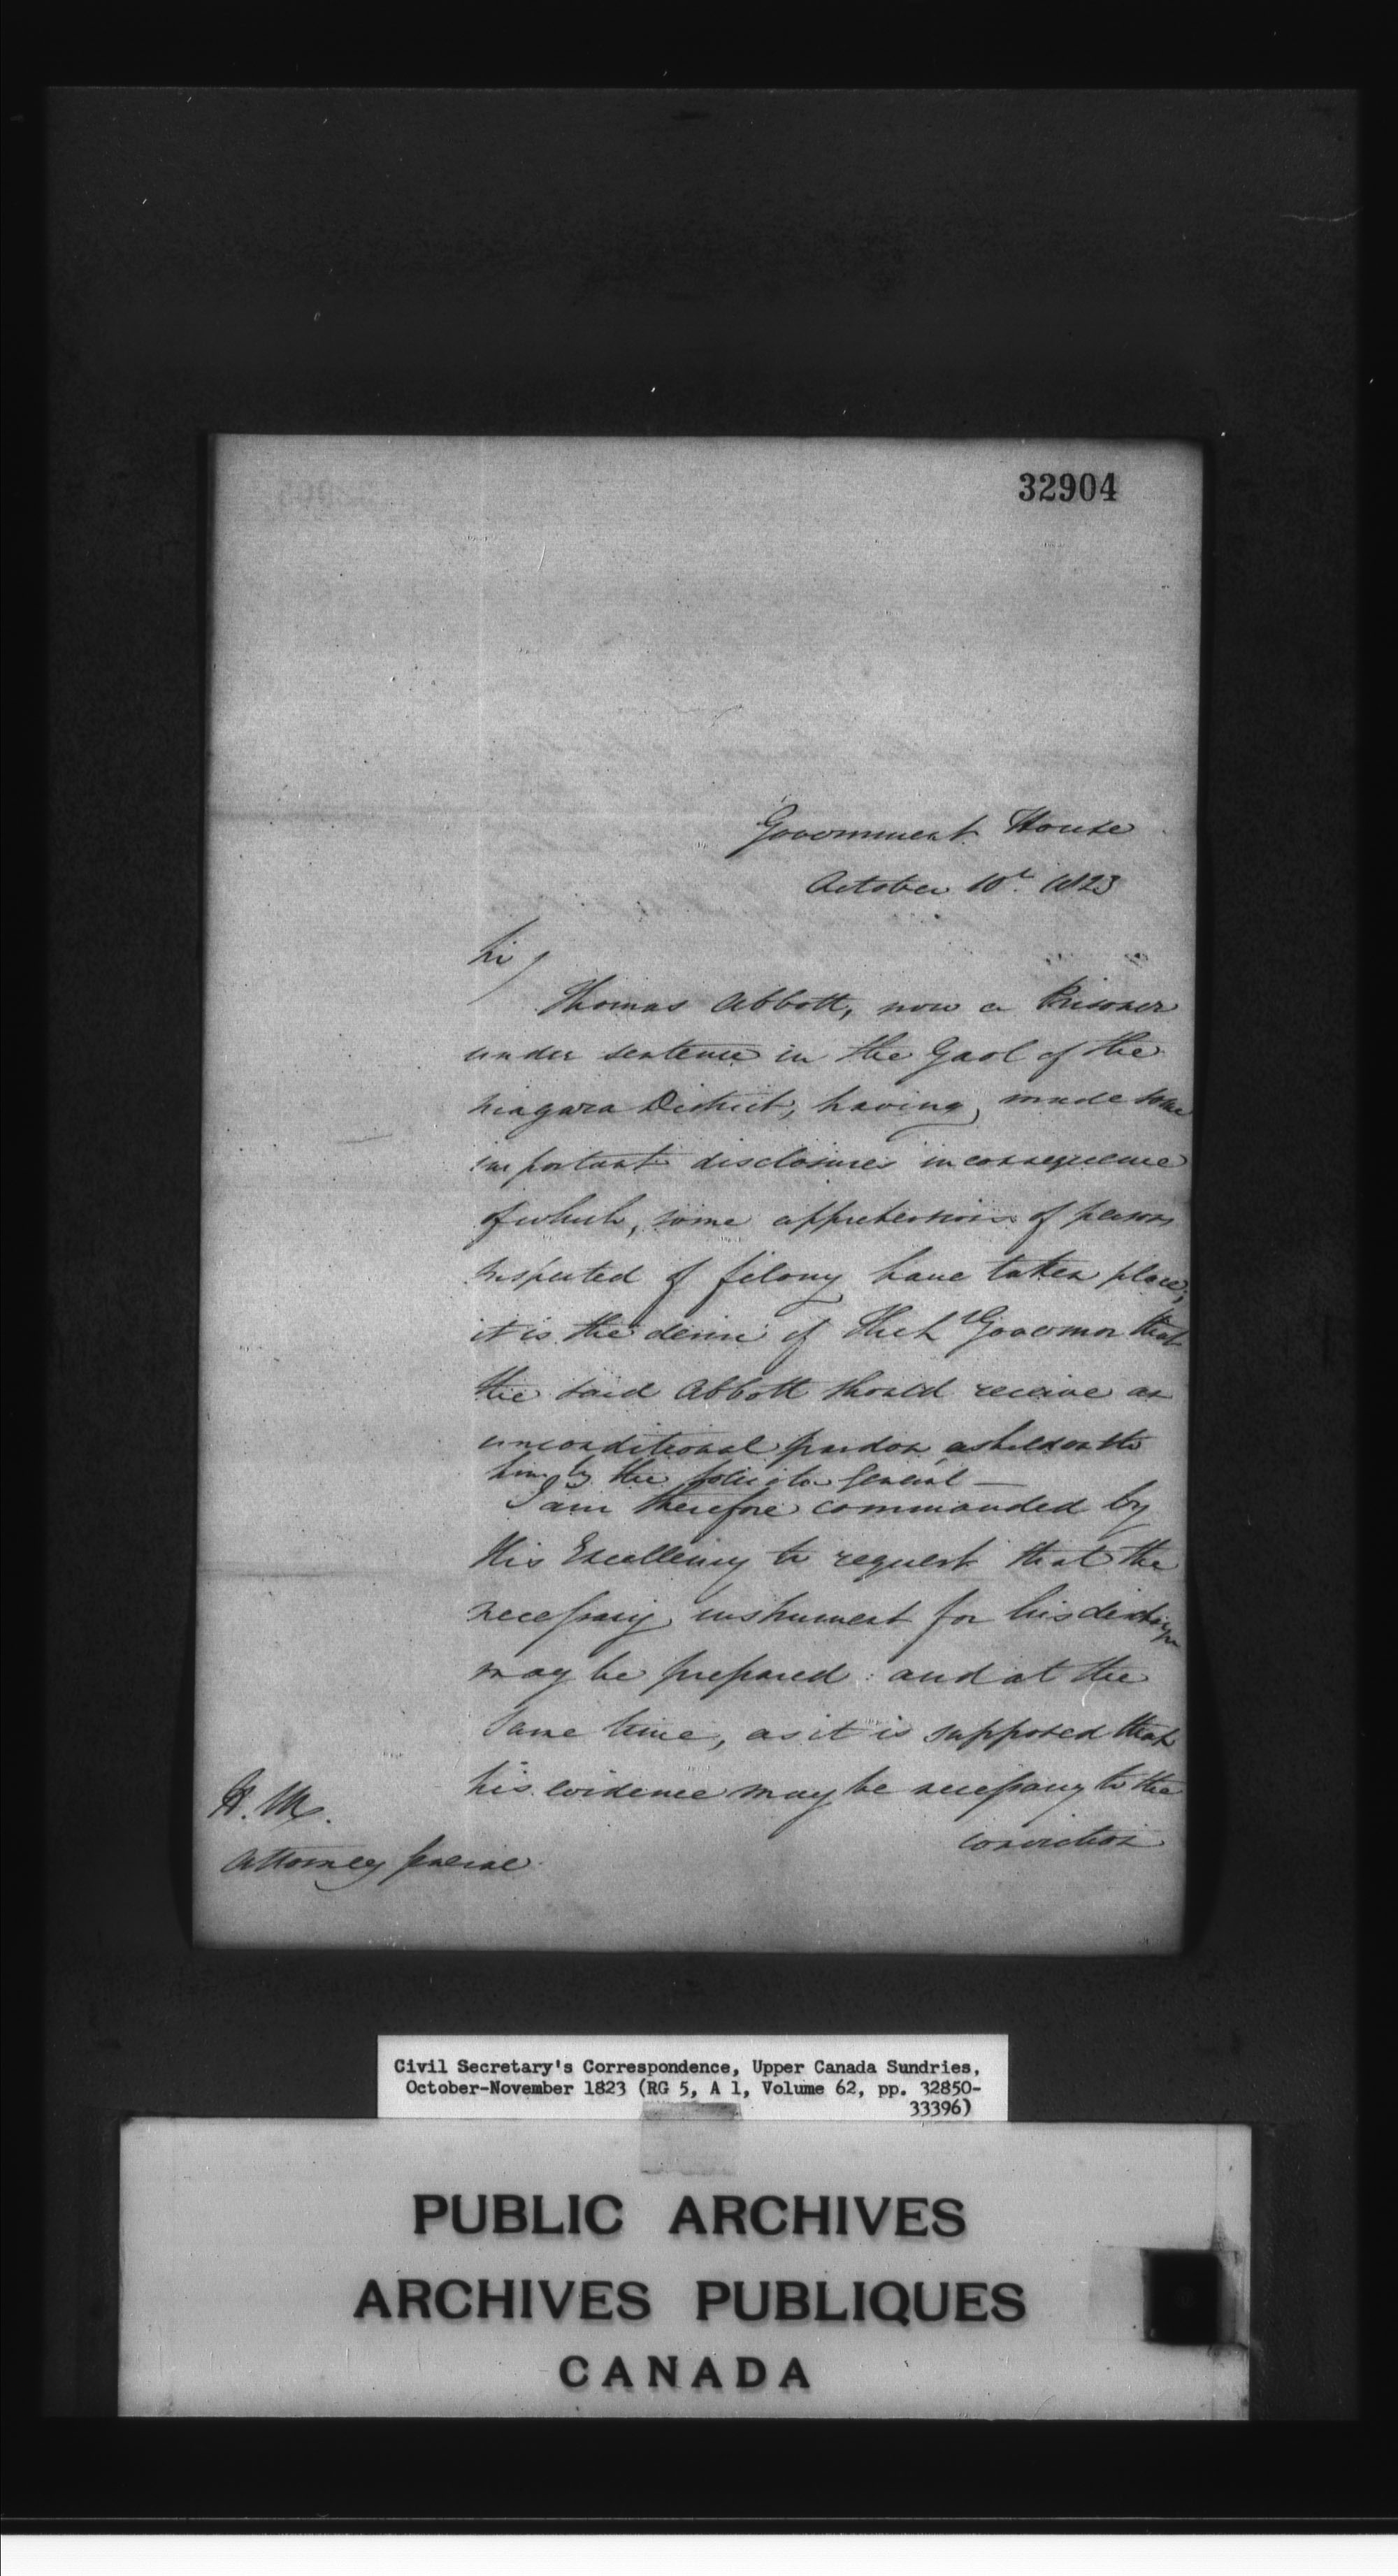 32904
Government House
October 10th. 1823
Sir/
Thomas Abbott, now a Prisoner
under sentence in the Gaol of the
Niagara District, having made some
important disclosures in consequence
of which, some apprehensions of persons
suspected of felony have taken place,
it is the desire of The Lt Governor that
the said Abbott should receive an
unconditional pardon, as held out to
him by the Solicitor General —
I am therefore commanded by
His Excellency to request that the
necessary instrument for his discharge
may be prepared: and at the
same time, as it is supposed that
his evidence may be necessary to the
conviction
H. M.
Attorney General
Civil Secretary's Correspondence, Upper Canada Sundries,
October-November 1823 (RG 5, A 1, Volume 62, pp. 32850-
33396)
PUBLIC ARCHIVES
ARCHIVES PUBLIQUES
CANADA